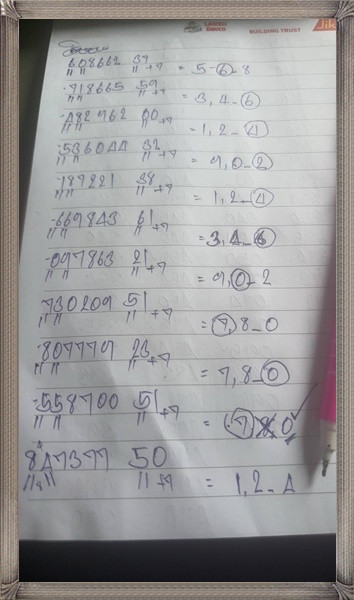 BUILDING TRUST
608662 39 +7 = 5-6-8
718665 59 +7 = 3,4-6
482962 00 +7 = 1,2-4
536044 32 +7 = 9,0-2
187221 38 +7 = 1,2-4
669843 61 +7 = 3,4-6
097863 21 +7 = 9,0-2
730209 51 +7 = 7,8-0
807779 23 +7 = 7,8-0
558700 51 +7 = 7 8 0
847377 50 +7 = 1,2-4